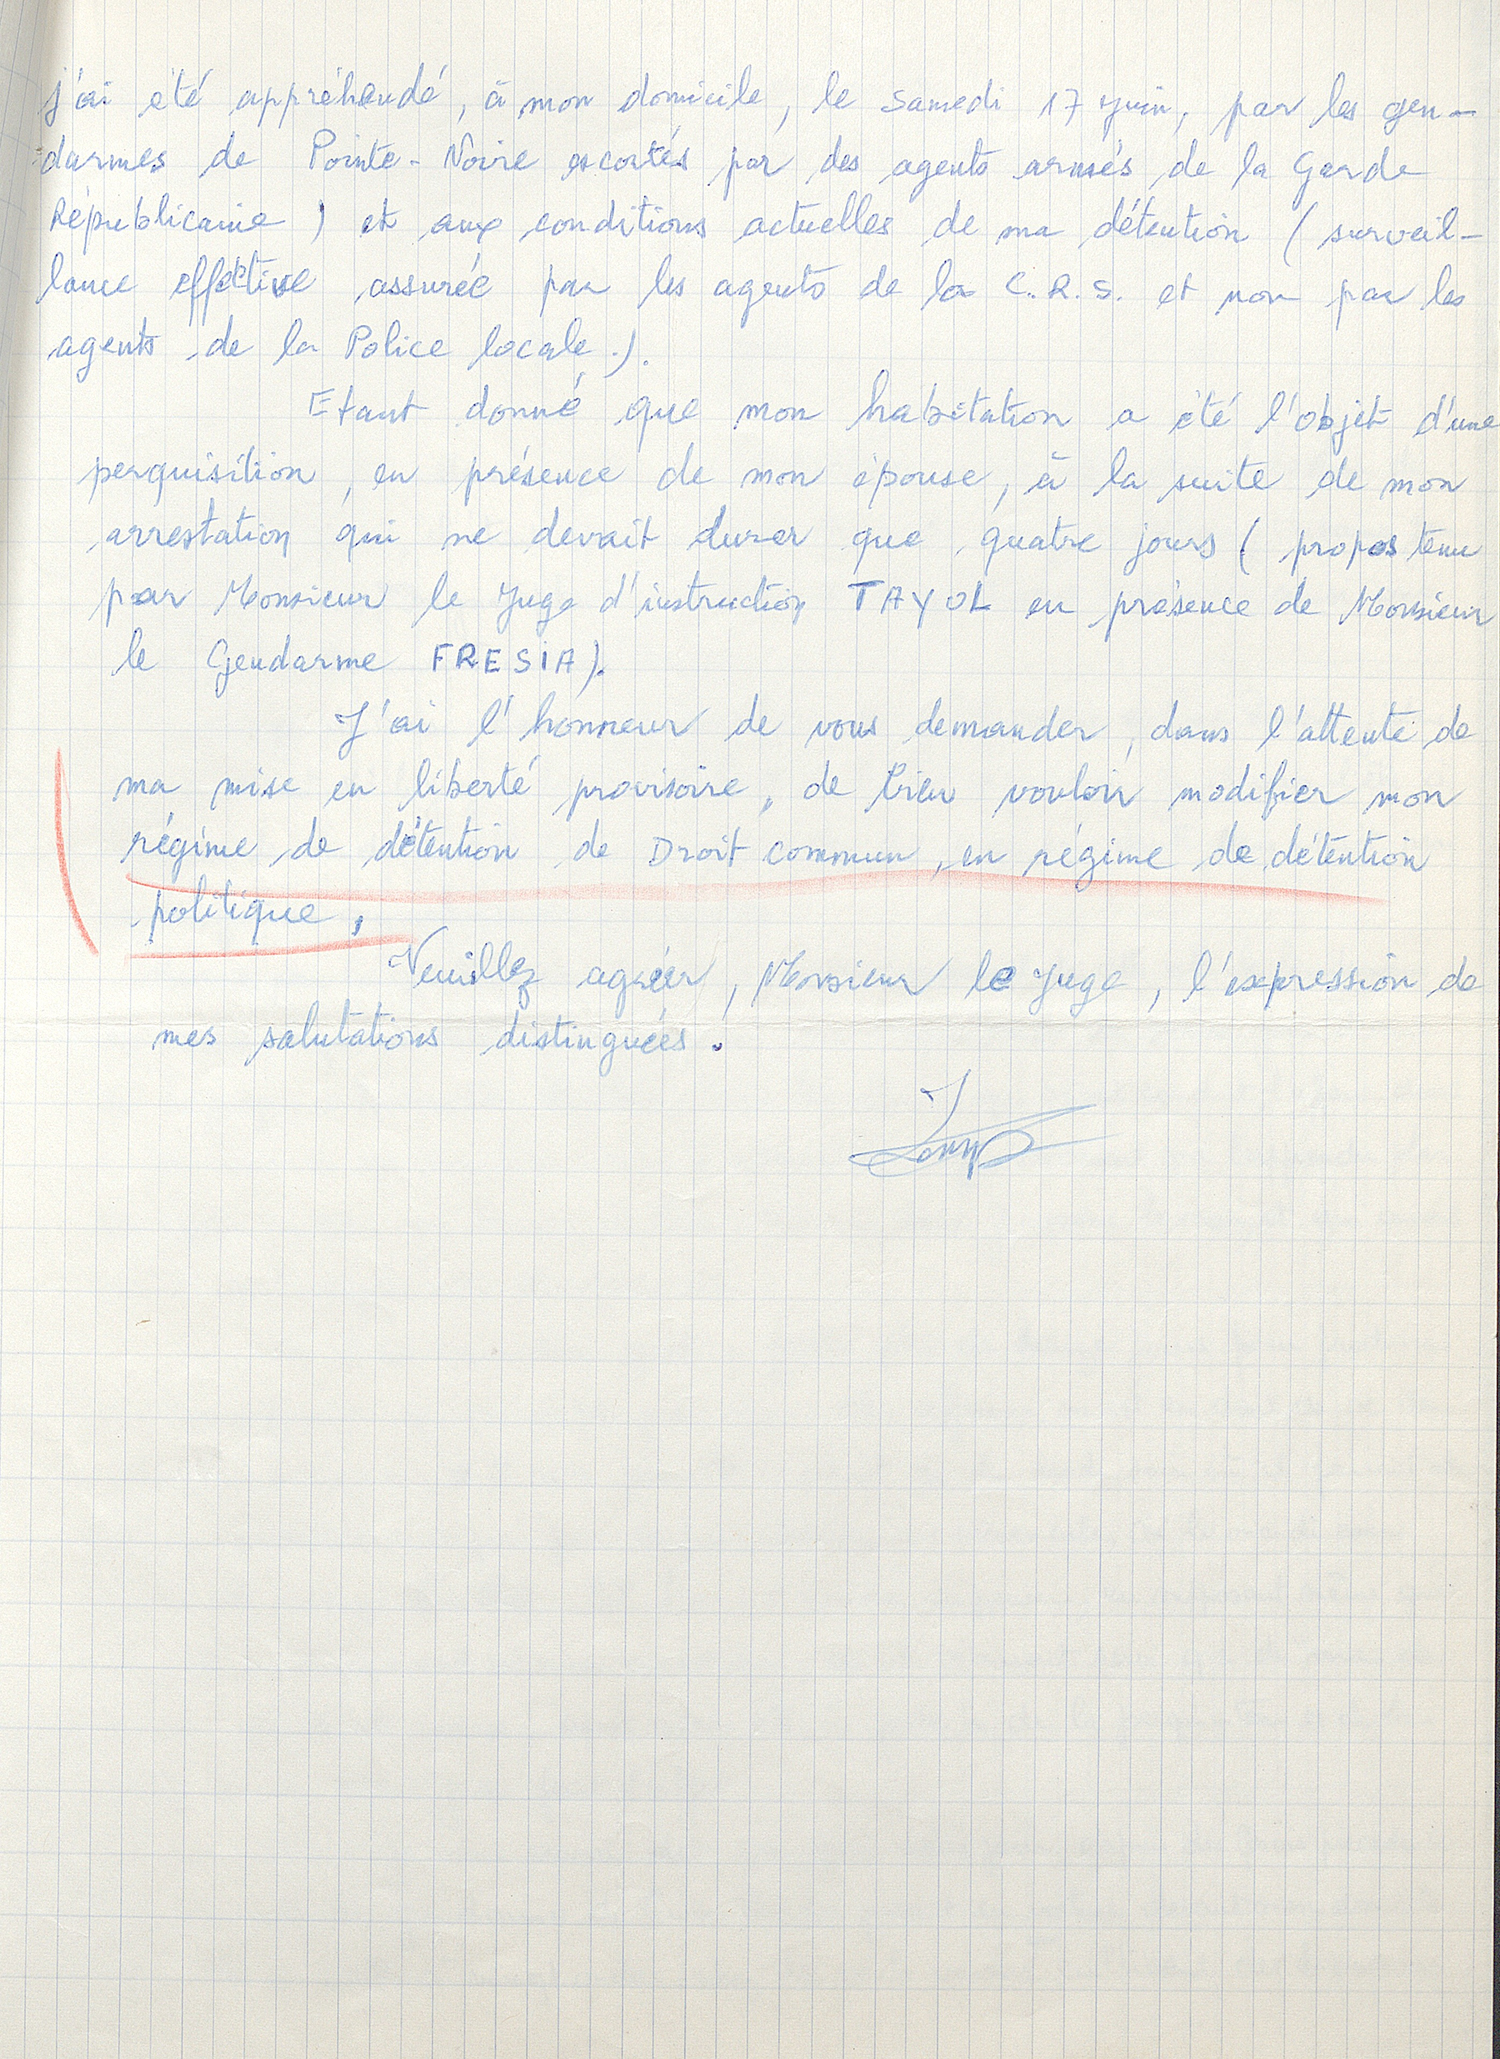 j'ai été appréhendé, à mon domicile, le Samedi 17 Juin, par les gen-
darmes de Pointe-Noire escortés par des agents armés de la Garde
Républicaine) et aux conditions actuelles de ma détention (surveil-
lance effective assurée par les agents de la C.R.S. et non par les
agents de la Police locale.).
Etant donné que mon habitation a été l'objet d'une
perquisition, en présence de mon épouse, à la suite de mon
arrestation qui ne devait durer que quatre jours (propos tenu
par Monsieur le Juge d'instruction TAYOL en présence de Monsieur
le Gendarme FRESIA).
J'ai l'honneur de vous demander, dans l'attente de
ma mise en liberté provisoire, de bien vouloir modifier mon
régime de détention de Droit commun, en régime de détention
politique,
Veuillez agréer, Monsieur le Juge, l'expression de
mes salutations distinguées.